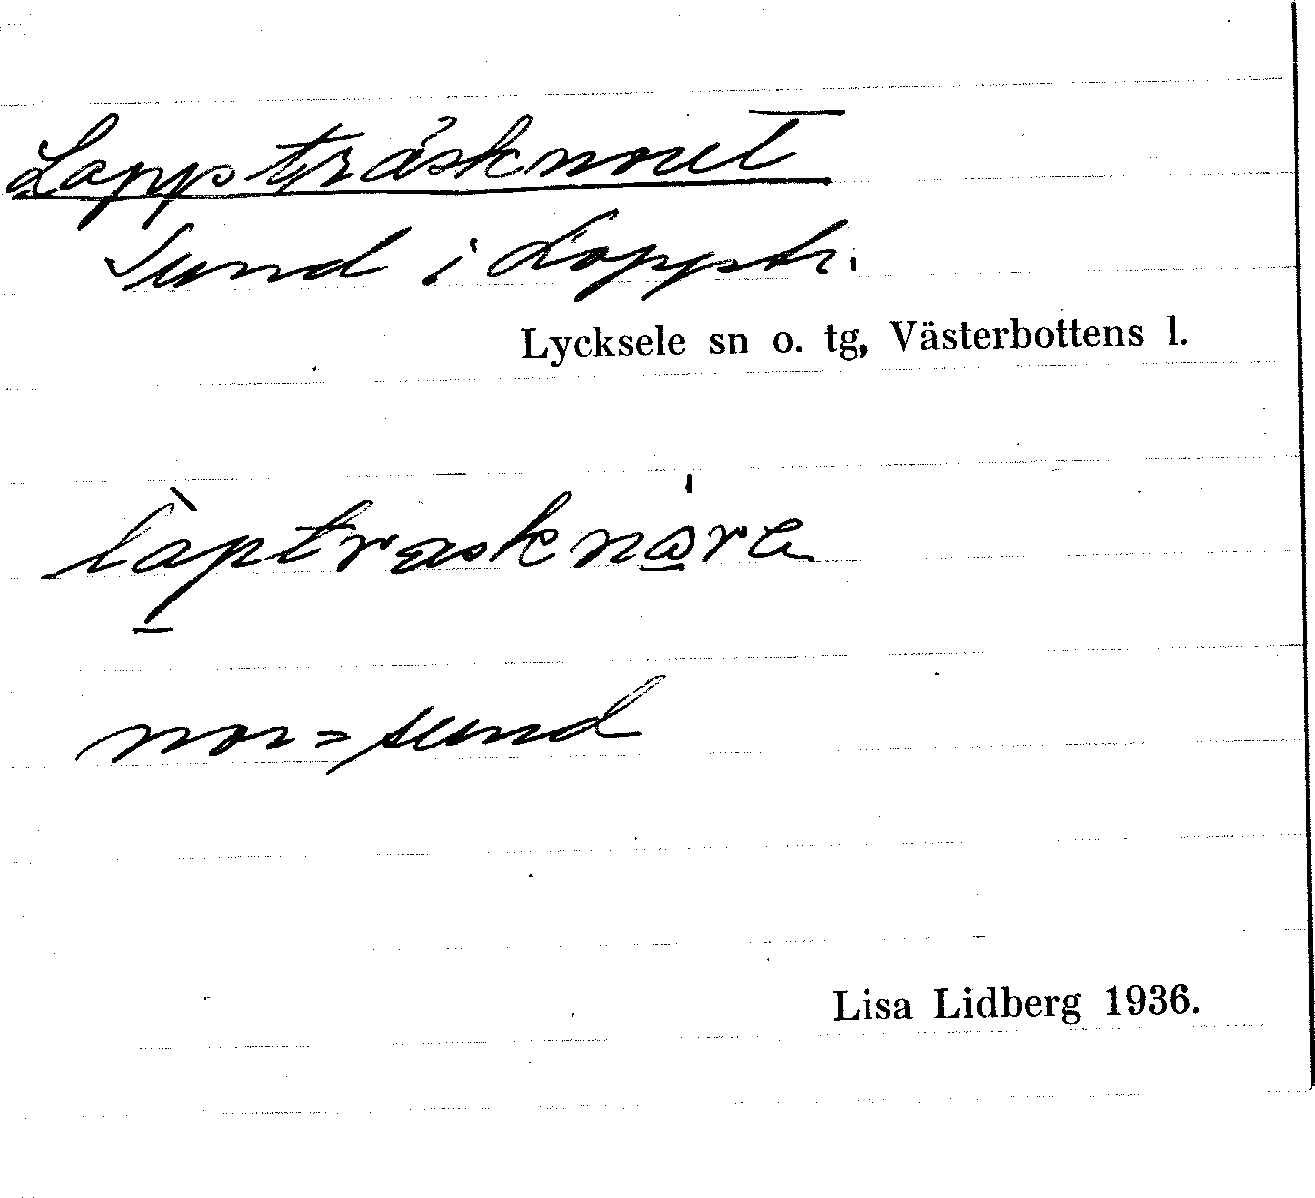 Lappträsknoret
Sund i Lapptr.
Lycksele sn o. tg, Västerbottens l.
làptræsknɷ̲̍ra
nor = sund
Lisa Lidberg 1936.